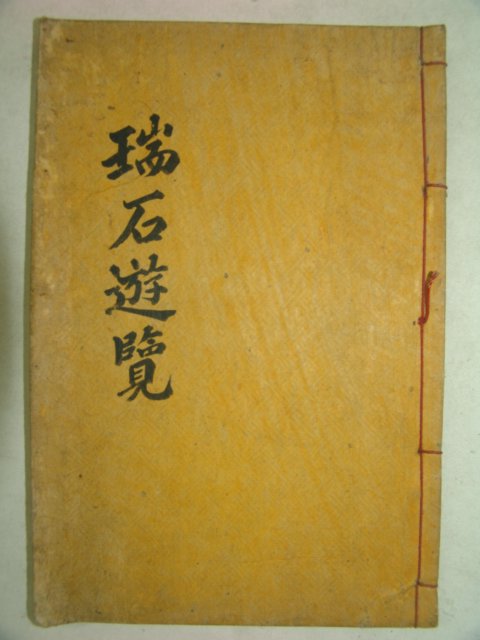 瑞石遊覽